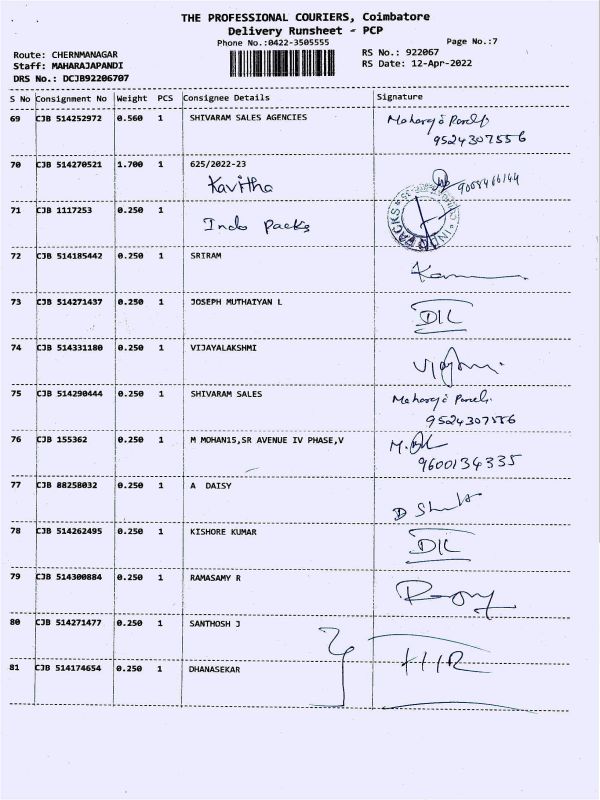 THE PROFESSIONAL COURIERS, Coimbatore
Delivery Runsheet - PCP
Phone No.:0422-3505555
Page No.:7
Route: CHERNMANAGAR
RS No.: 922067
Staff: MAHARAJAPANDI
RS Date: 12-Apr-2022
DRS No.: DCJB92206707
S No Consignment No Weight PCS Consignee Details Signature
69 CJB 514252972 0.560 1 SHIVARAM SALES AGENCIES
9524307556
70 CJB 514270521 1.700 1 625/2022-23
Kavitha
71 CJB 1117253 0.250 1
Indo Packs
72 CJB 514185442 0.250 1 SRIRAM
73 CJB 514271437 0.250 1 JOSEPH MUTHAIYAN L
74 CJB 514331180 0.250 1 VIJAYALAKSHMI
75 CJB 514290444 0.250 1 SHIVARAM SALES
9524307556
76 CJB 155362 0.250 1 M MOHAN15,SR AVENUE IV PHASE,V
9600134335
77 CJB 88258032 0.250 1 A DAISY
78 CJB 514262495 0.250 1 KISHORE KUMAR
79 CJB 514300884 0.250 1 RAMASAMY R
80 CJB 514271477 0.250 1 SANTHOSH J
81 CJB 514174654 0.250 1 DHANASEKAR